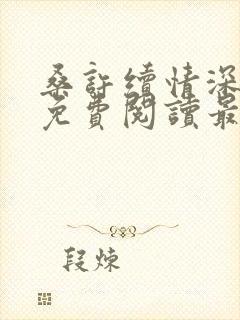 桑許續情深
免費閱讀最
段煉